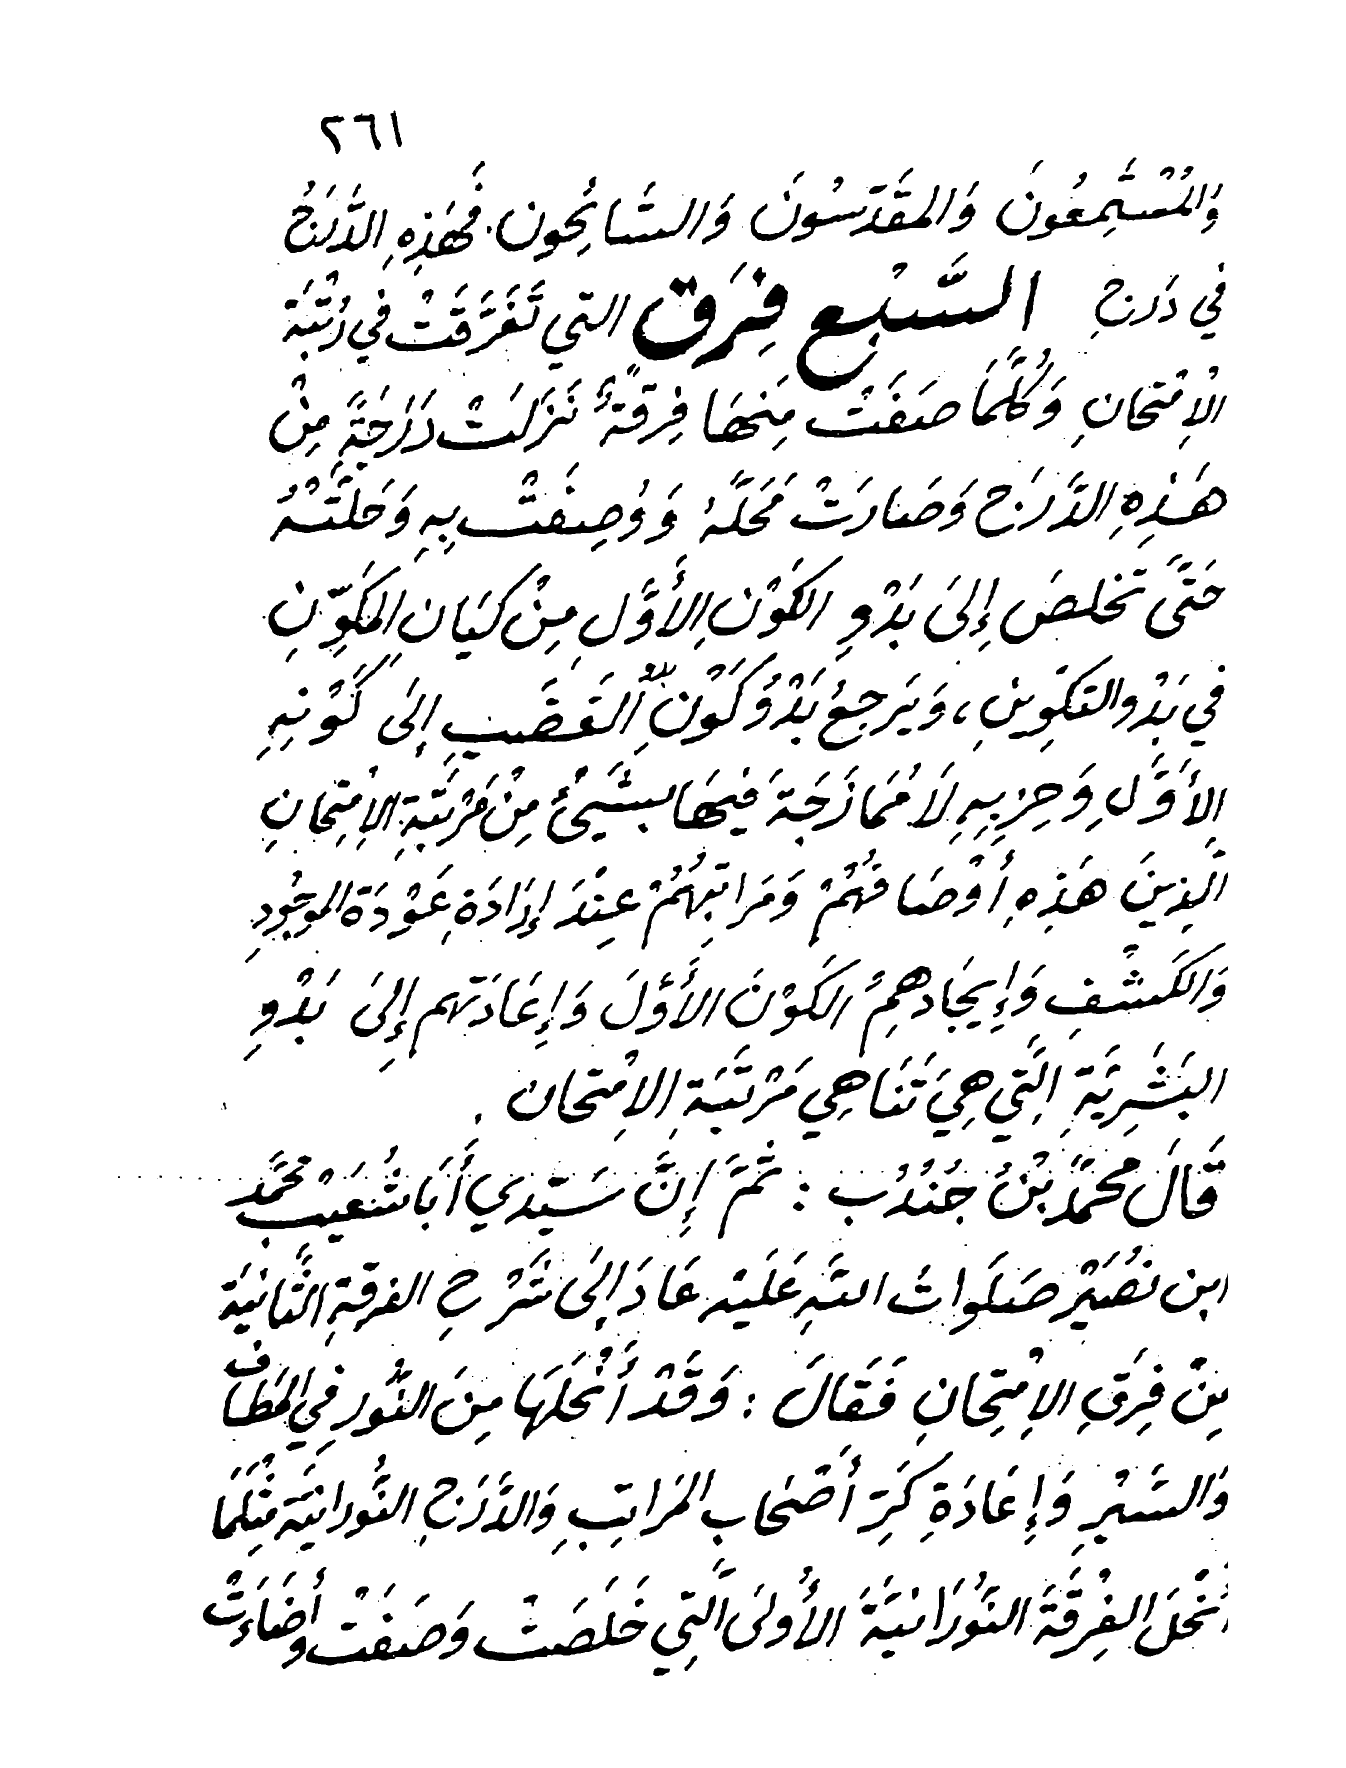 ٢٦١
وَالمُسْتَمِعُونَ وَالمقَدّسُونَ وَالسَّائِحُون. فَهَذِهِ الدَّرَجُ
في دَرَجِ السَّبْعِ فِرَقٍ التي تَفَرَّقَتْ في رُتْبَةِ
الاِمْتحانِ وَكُلَّمَا صَفَتْ مِنهَا فِرقَةً نَزَلَتْ دَرَجَةً مِنْ
هَذِهِ الدَّرَج وَصَارَتْ مَحَلَّهُ وَوُصِفَتْ بِهِ وَحَلَّتْهُ
حَتَّى تخلصَ إِلىَ بَدْوِ الكَوْنِ الأَوَّلِ مِنْ كَيَانِ المكَوِّنِ
في بَدْوِ التكْوِينِ، وَيَرجِعُ بَدْوُ كَوْنِ القَضَبِ إِلَى كَوْنِهِ
الأَوَّلِ وَحِزبِهِ لاَ مُمَازَجَةَ فِيهَا بشَيْئٍ مِنْ مَرْتَبَةِ الاِمْتِحَانِ
الَّذِينَ هَذِهِ أَوْصَافُهُمْ وَمَرَاتِبُهُمْ عِنْدَ إِرَادَةِ عَوْدَةِ الموجُودِ
وَالكَشْفِ وَإِيجَادهِمُ الكَوْنَ الأَوَّلَ وَإِعَادَتهم إِلىَ بَدْوِ
البَشَرِيَّةِ الَّتِي هِيَ تَنَاهِي مَرْتَبَةِ الاِمْتِحَان.
قَالَ محمَّدُ بْنُ جُنْدُب: ثُمَّ إِنَّ سَيّدي أَبَا شُعَيْبٍ محمَّد
ابن نصُيَرْ صَلَوَاتُ اللَّهِ عَلَيْهِ عَادَ إِلَى شَرْحِ الفرقةِ الثَّانِيَة
مِنْ فِرَقِ الاِمْتِحَانِ فَقَالَ: وَقَدْ أَنْحَلَهَا مِنَ النُّور في المَطَاف
وَالسَّيْرِ وَإِعَادَةِ كَرِّ أَصْحَاب المَرَاتِبِ وَالدَّرَجِ النُّورانيَّة مثْلَمَا
أَنْحَلَ الفِرْقَةَ النُّورَانيَّةَ الأُولىَ الَّتِي خَلَصَتْ وَصَفَتْ وأَضَاءَتْ